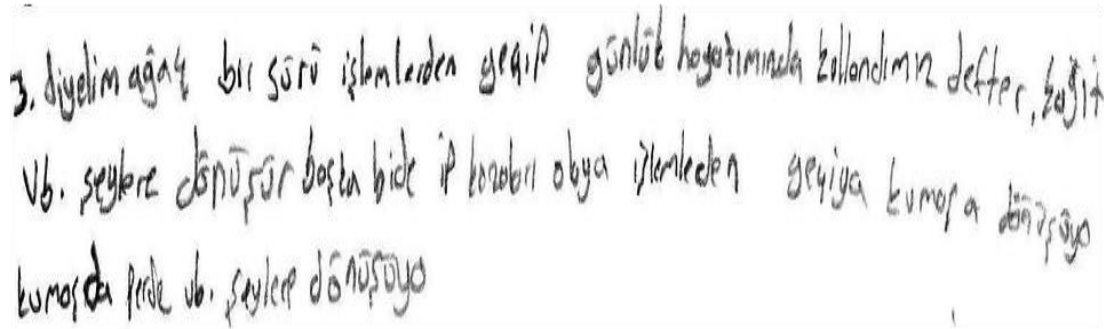 3. diyelim ağaç bir sürü işlemlerden geçip günlük hayatımında kullandımız defter, kağıt
vb. şeylere dönüşür başka bide ip kozoları oluya işlemleden geçiya kumaşa dönüşüyo
kumaşda perde vb. şeylere dönüşüyo